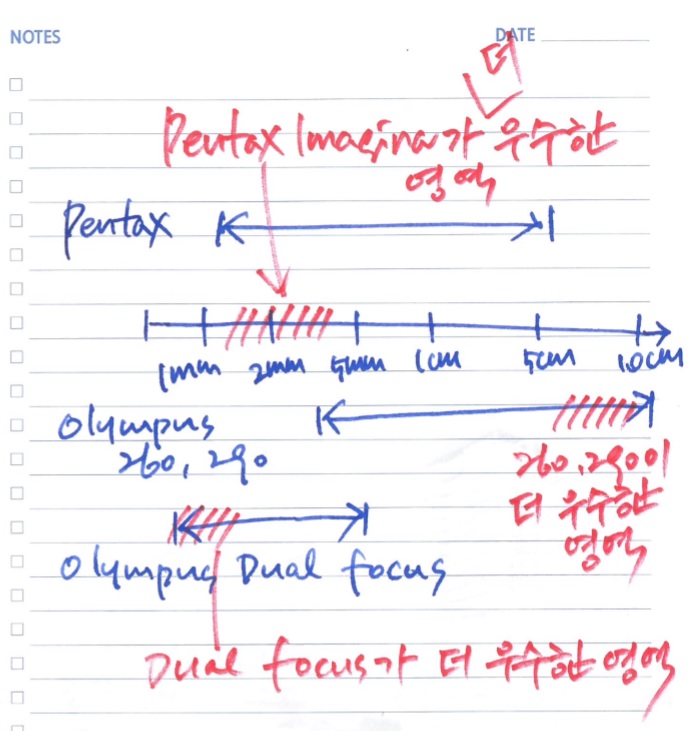 NOTES
DATE
더
Pentax Imagina가 우수한
영역
Pentax
1mm 2mm 5mm 1cm 5cm 10cm
Olympus
260, 290
260, 290이
더 우수한
영역
Olympus Dual focus
Dual focus가 더 우수한 영역